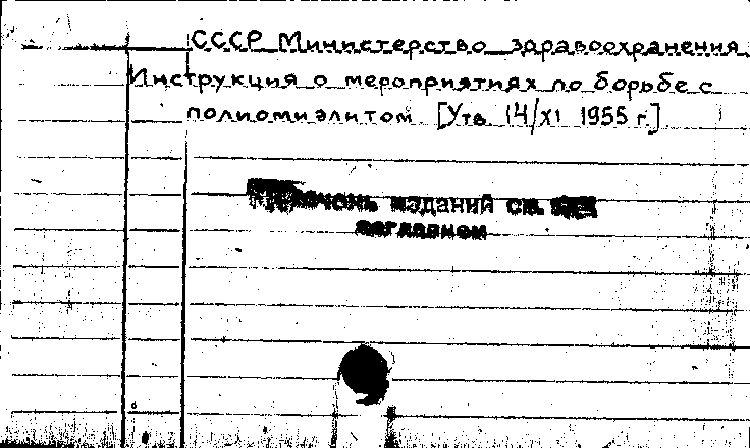 СССР Министерство здравоохранения
Инструкция о мероприятиях по борьбе с
полиомиэлитом [Утв. 14/XI 1955 г.]
изданий см.
заглавием